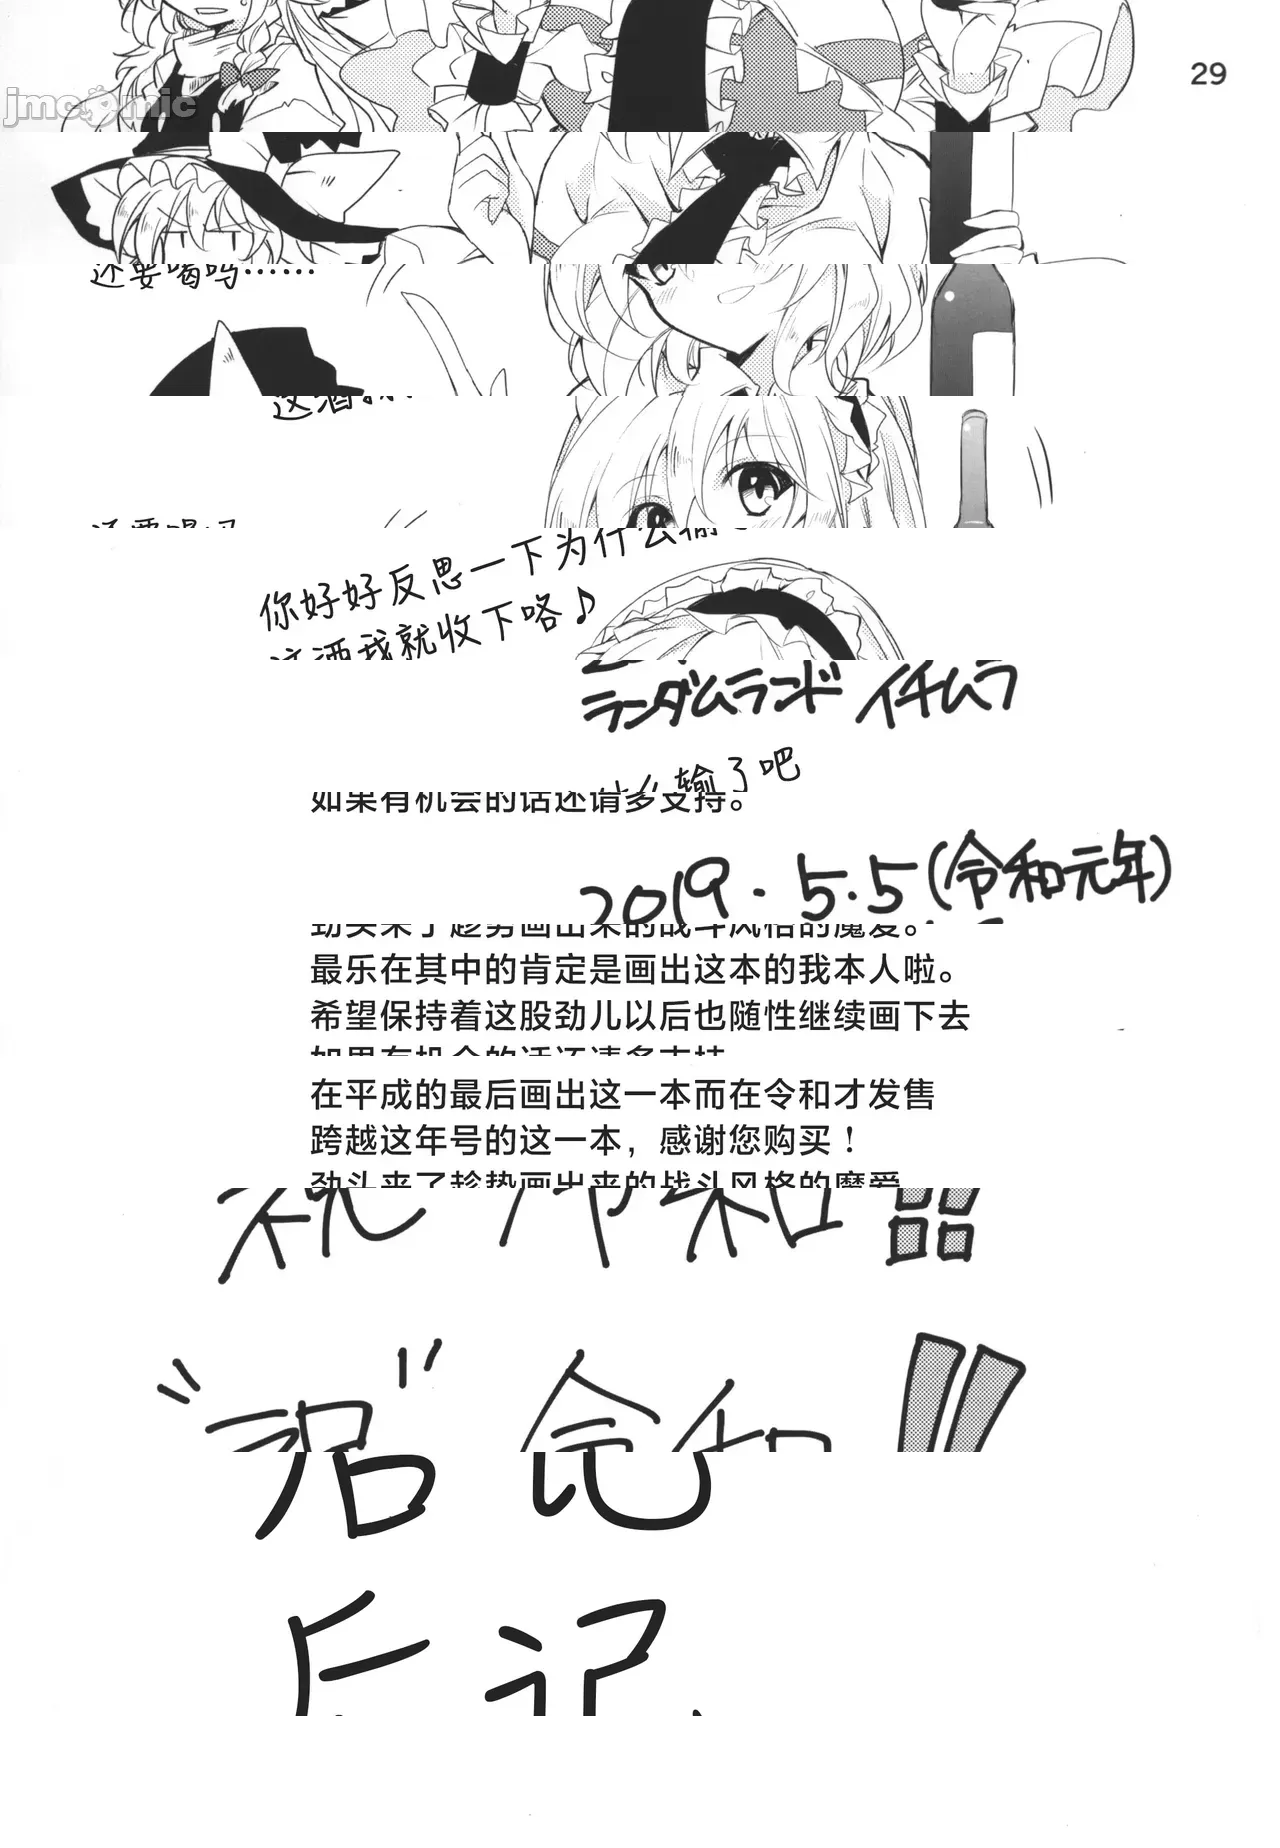 29
jmcomic
还要喝吗……
这酒
你好好反思一下为什么输
这酒我就收下咯♪
ランダムランド イチムラ
什么输了吧
如果有机会的话还请多支持。
2019.5.5(令和元年)
劲头来了趁势画出来的战斗风格的魔爱。
最乐在其中的肯定是画出这本的我本人啦。
希望保持着这股劲儿以后也随性继续画下去
如果有机会的话还请多支持
在平成的最后画出这一本而在令和才发售
跨越这年号的这一本，感谢您购买！
劲头来了趁势画出来的战斗风格的魔爱
祝 令和!!
后记